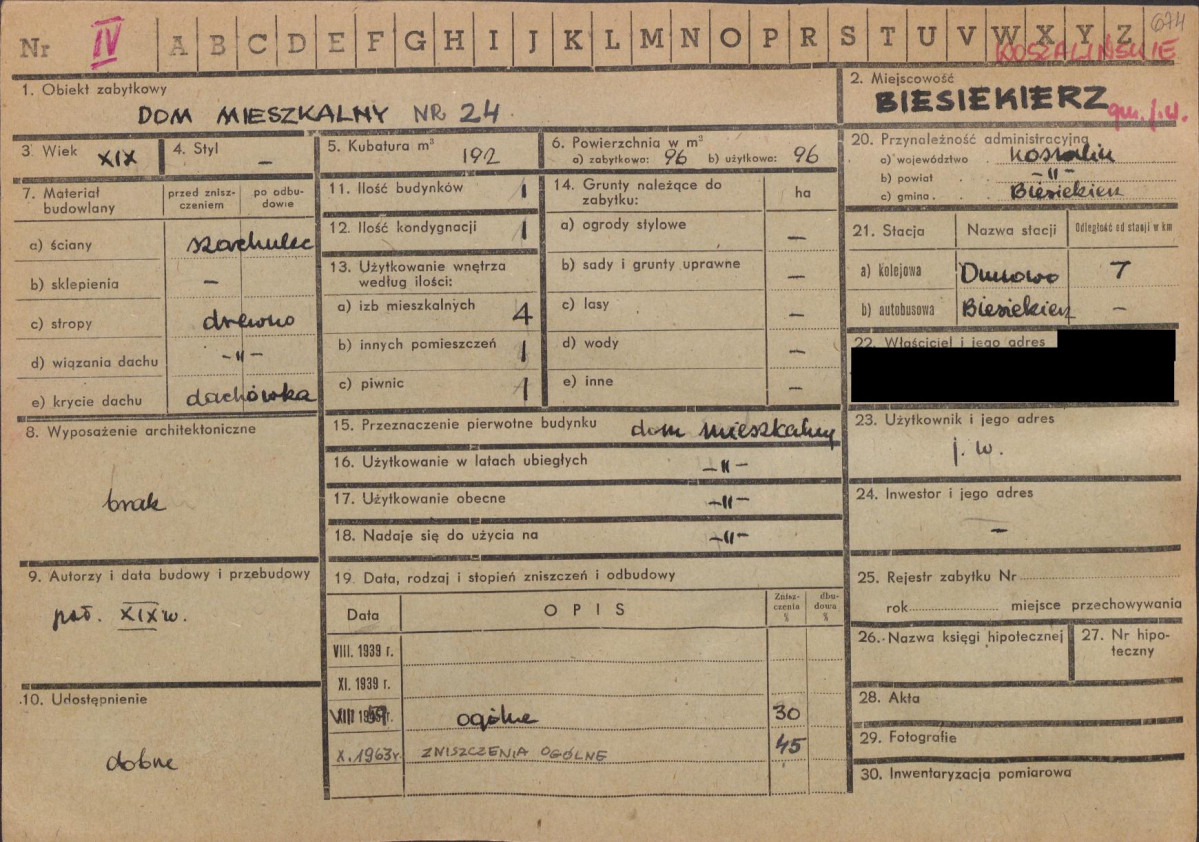 Nr IV A B C D E F G H I J K L M N O P R S T U V W X Y Z 674
KOSZALIŃSKIE
1. Obiekt zabytkowy
DOM MIESZKALNY NR 24
2. Miejscowość
BIESIEKIERZ
gm. j.w.
3. Wiek XIX
4. Styl –
5. Kubatura m³ 192
6. Powierzchnia w m²
a) zabytkowa: 96 b) użytkowa: 96
7. Materiał budowlany
przed zniszczeniem
po odbudowie
a) ściany szachulec
b) sklepienia –
c) stropy drewno
d) wiązania dachu -"-
e) krycie dachu dachówka
8. Wyposażenie architektoniczne
brak
9. Autorzy i data budowy i przebudowy
poł. XIX w.
10. Udostępnienie
dobre
11. Ilość budynków 1
12. Ilość kondygnacji 1
13. Użytkowanie wnętrza
według ilości:
a) izb mieszkalnych 4
b) innych pomieszczeń 1
c) piwnic 1
14. Grunty należące do
zabytku: ha
a) ogrody stylowe –
b) sady i grunty uprawne –
c) lasy –
d) wody –
e) inne –
15. Przeznaczenie pierwotne budynku dom mieszkalny
16. Użytkowanie w latach ubiegłych -"-
17. Użytkowanie obecne -"-
18. Nadaje się do użycia na -"-
19. Data, rodzaj i stopień zniszczeń i odbudowy
Data OPIS Zniszczenia % dbudowa %
VIII. 1939 r.
XI. 1939 r.
ogólne 30
X. 1963 r. ZNISZCZENIA OGÓLNE 45
20. Przynależność administracyjna
a) województwo Koszalin
b) powiat -"-
c) gmina Biesiekierz
21. Stacja Nazwa stacji Odległość od stacji w km
a) kolejowa Dunowo 7
b) autobusowa Biesiekierz –
22. Właściciel i jego adres
23. Użytkownik i jego adres
j. w.
24. Inwestor i jego adres
–
25. Rejestr zabytku Nr
rok miejsce przechowywania
26. Nazwa księgi hipotecznej
27. Nr hipoteczny
28. Akta
29. Fotografie
30. Inwentaryzacja pomiarowa